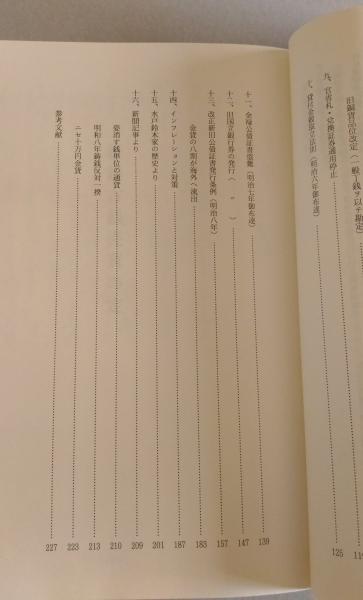 旧銅貨品位改定(一般ニ銭ヲ以テ勘定)
九、官省札・兌換証券通用停止
十、貸付金銀取立法則(明治八年御布達) 125
十一、金禄公債証書盗難(明治七年御布達) 139
十二、旧国立銀行券の発行(〃) 147
十三、改正新旧公債証書発行条例(明治八年) 157
金貨の八割が海外へ流出 183
十四、インフレーションと対策 187
十五、水戸鈴木家の歴史より 201
十六、新聞記事より 209
姿消す銭単位の通貨 210
明和八年鋳銭反対一揆 213
ニセ十万円金貨 223
参考文献 227